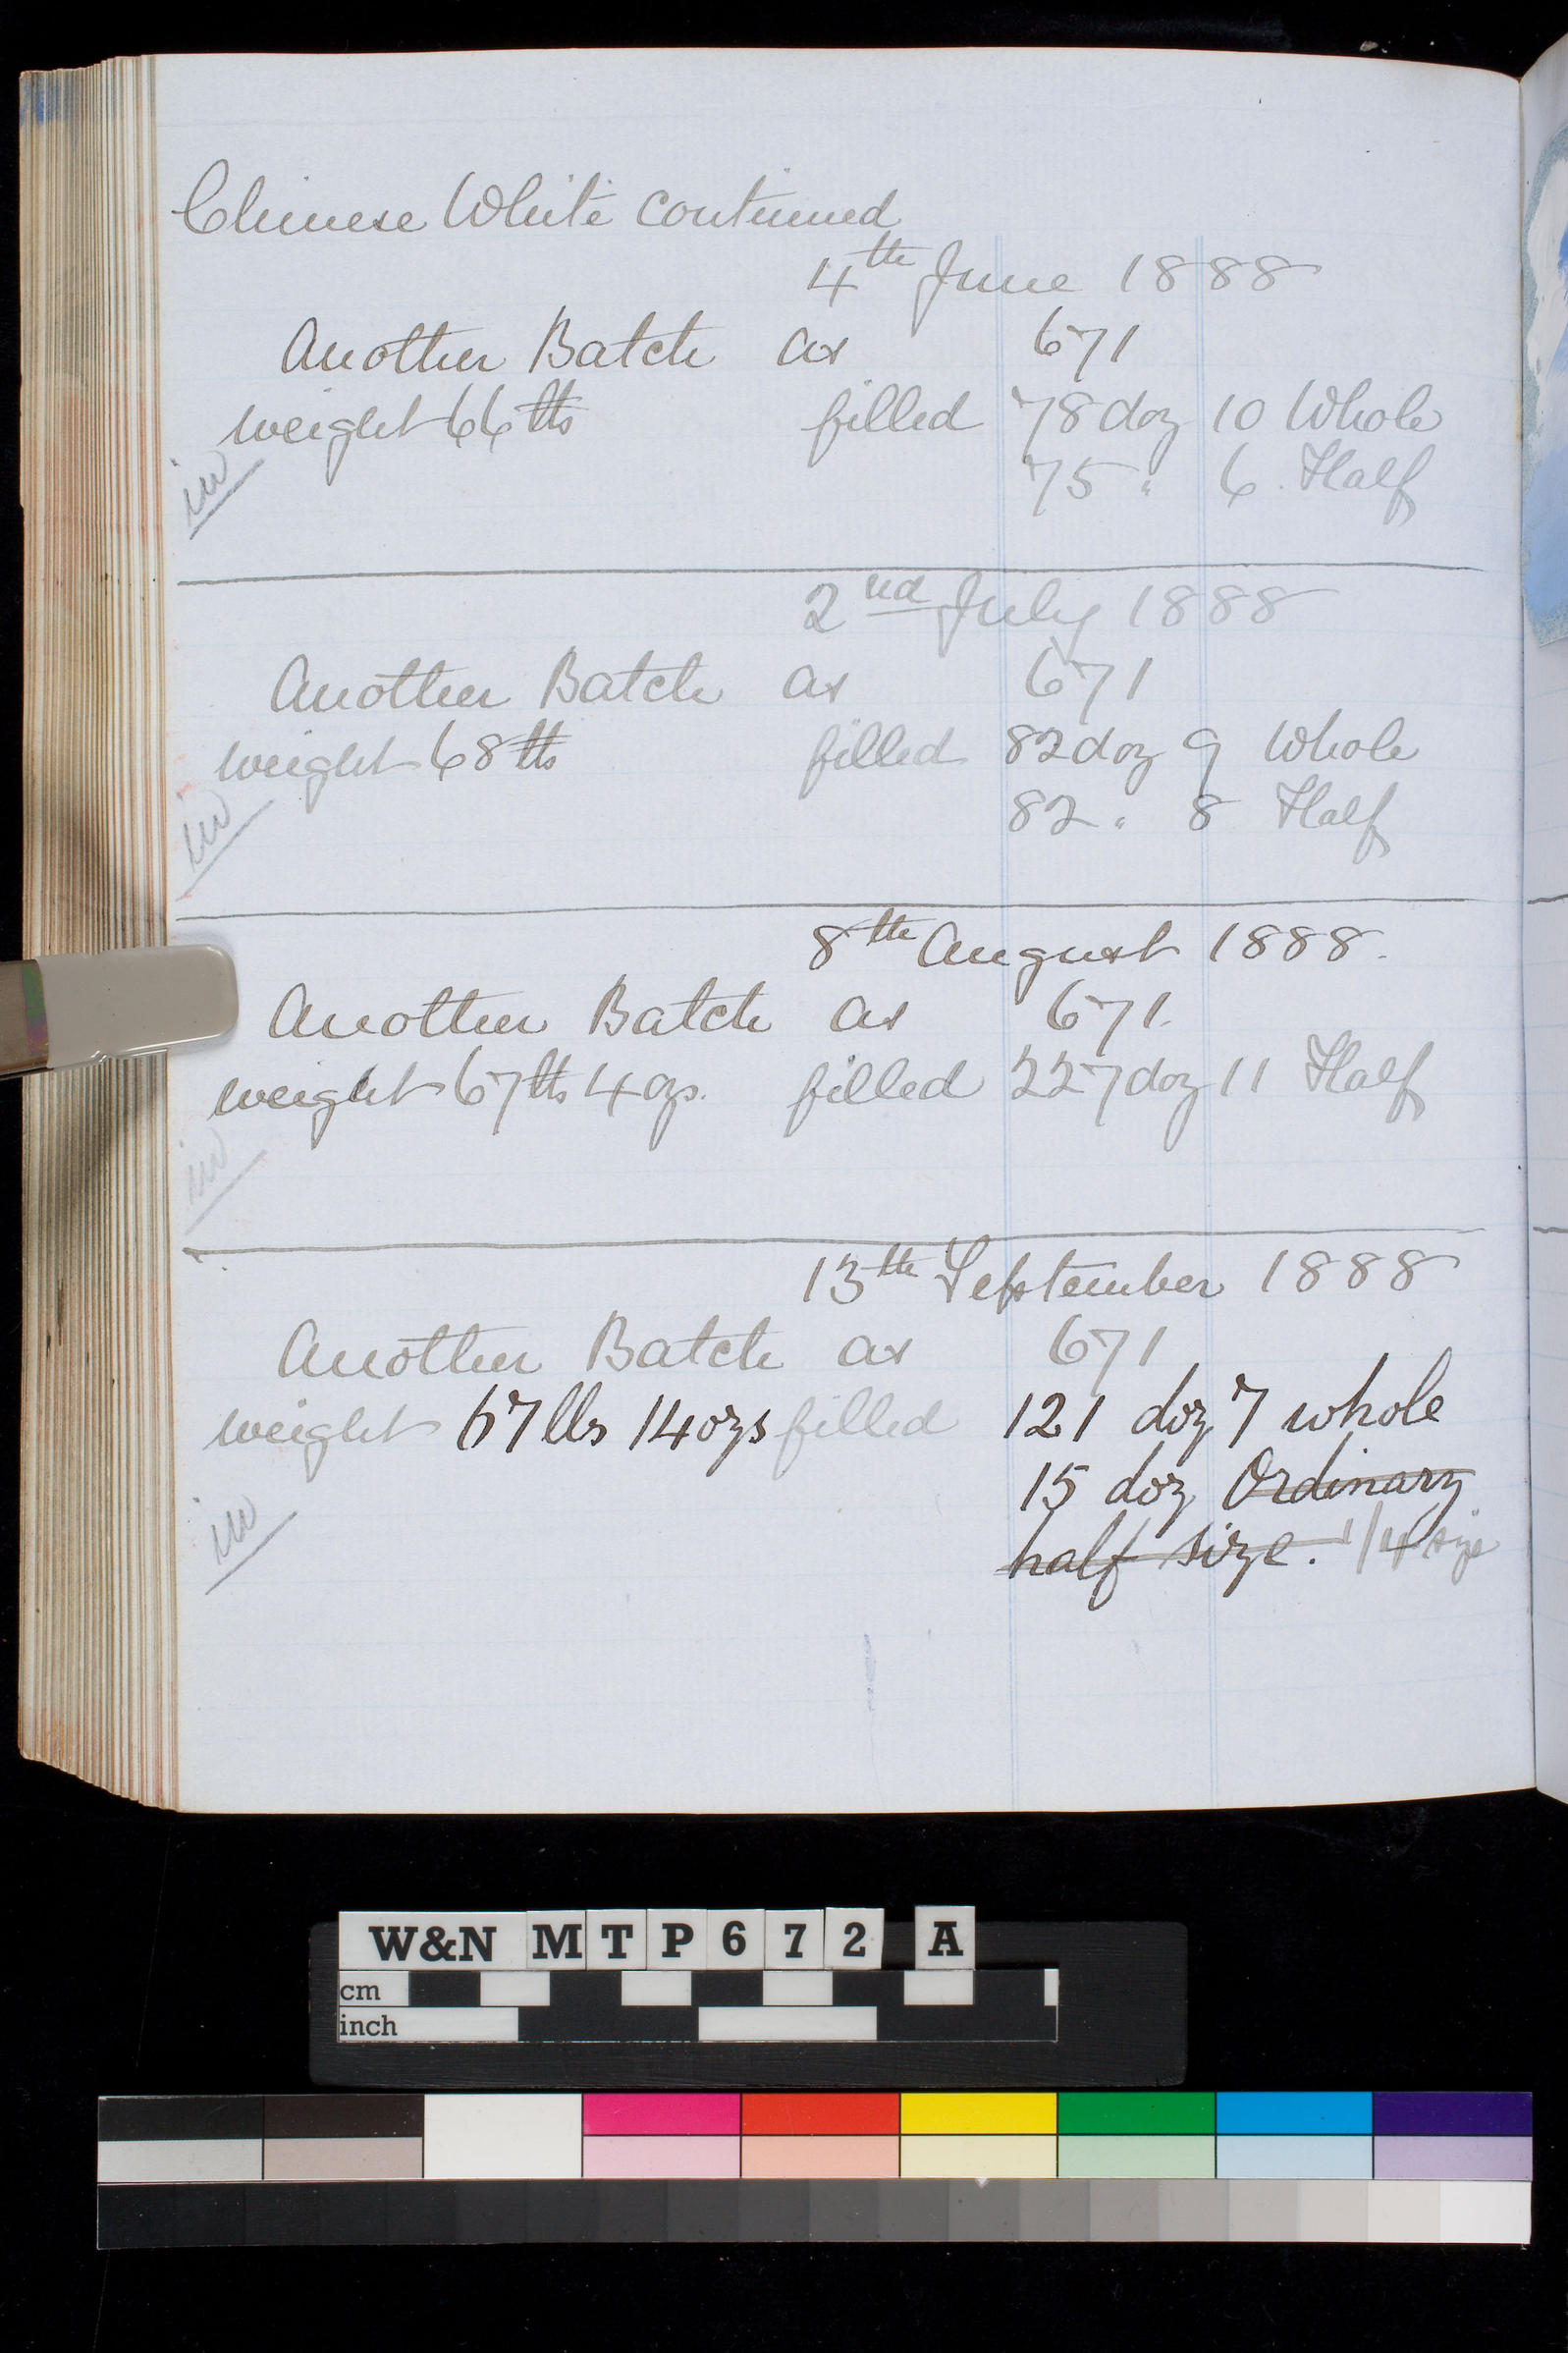 Chinese White continued
4th June 1888
Another Batch as 671
weight 66 lbs filled 78 doz 10 Whole
75 " 6 Half
in
2nd July 1888
Another Batch as 671
weight 68 lbs filled 82 doz 9 Whole
82 " 8 Half
in
8th August 1888.
Another Batch as 671.
weight 67 lbs 4 ozs. filled 227 doz 11 Half
in
13th September 1888
Another Batch as 671
weight 67 lbs 14 ozs filled 121 doz 7 whole
15 doz Ordinary
half size. 1/4 size
in
W&N MTP672 A
cm
inch